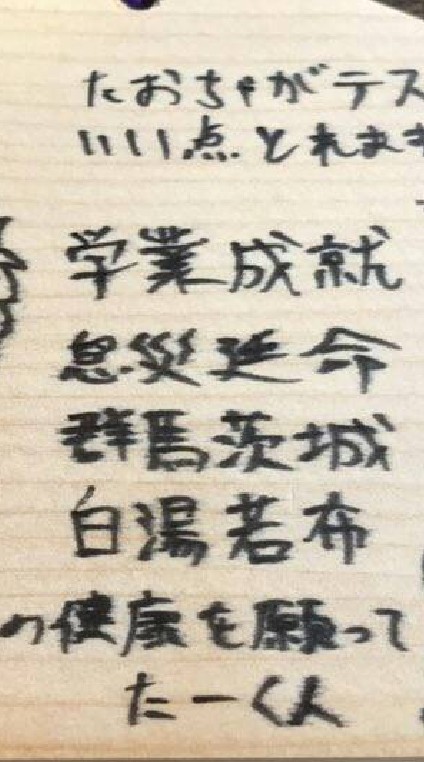 たおちゃがテス
いい点とれます
学業成就
息災延命
群馬茨城
白湯若布
の健康を願って
たーくん